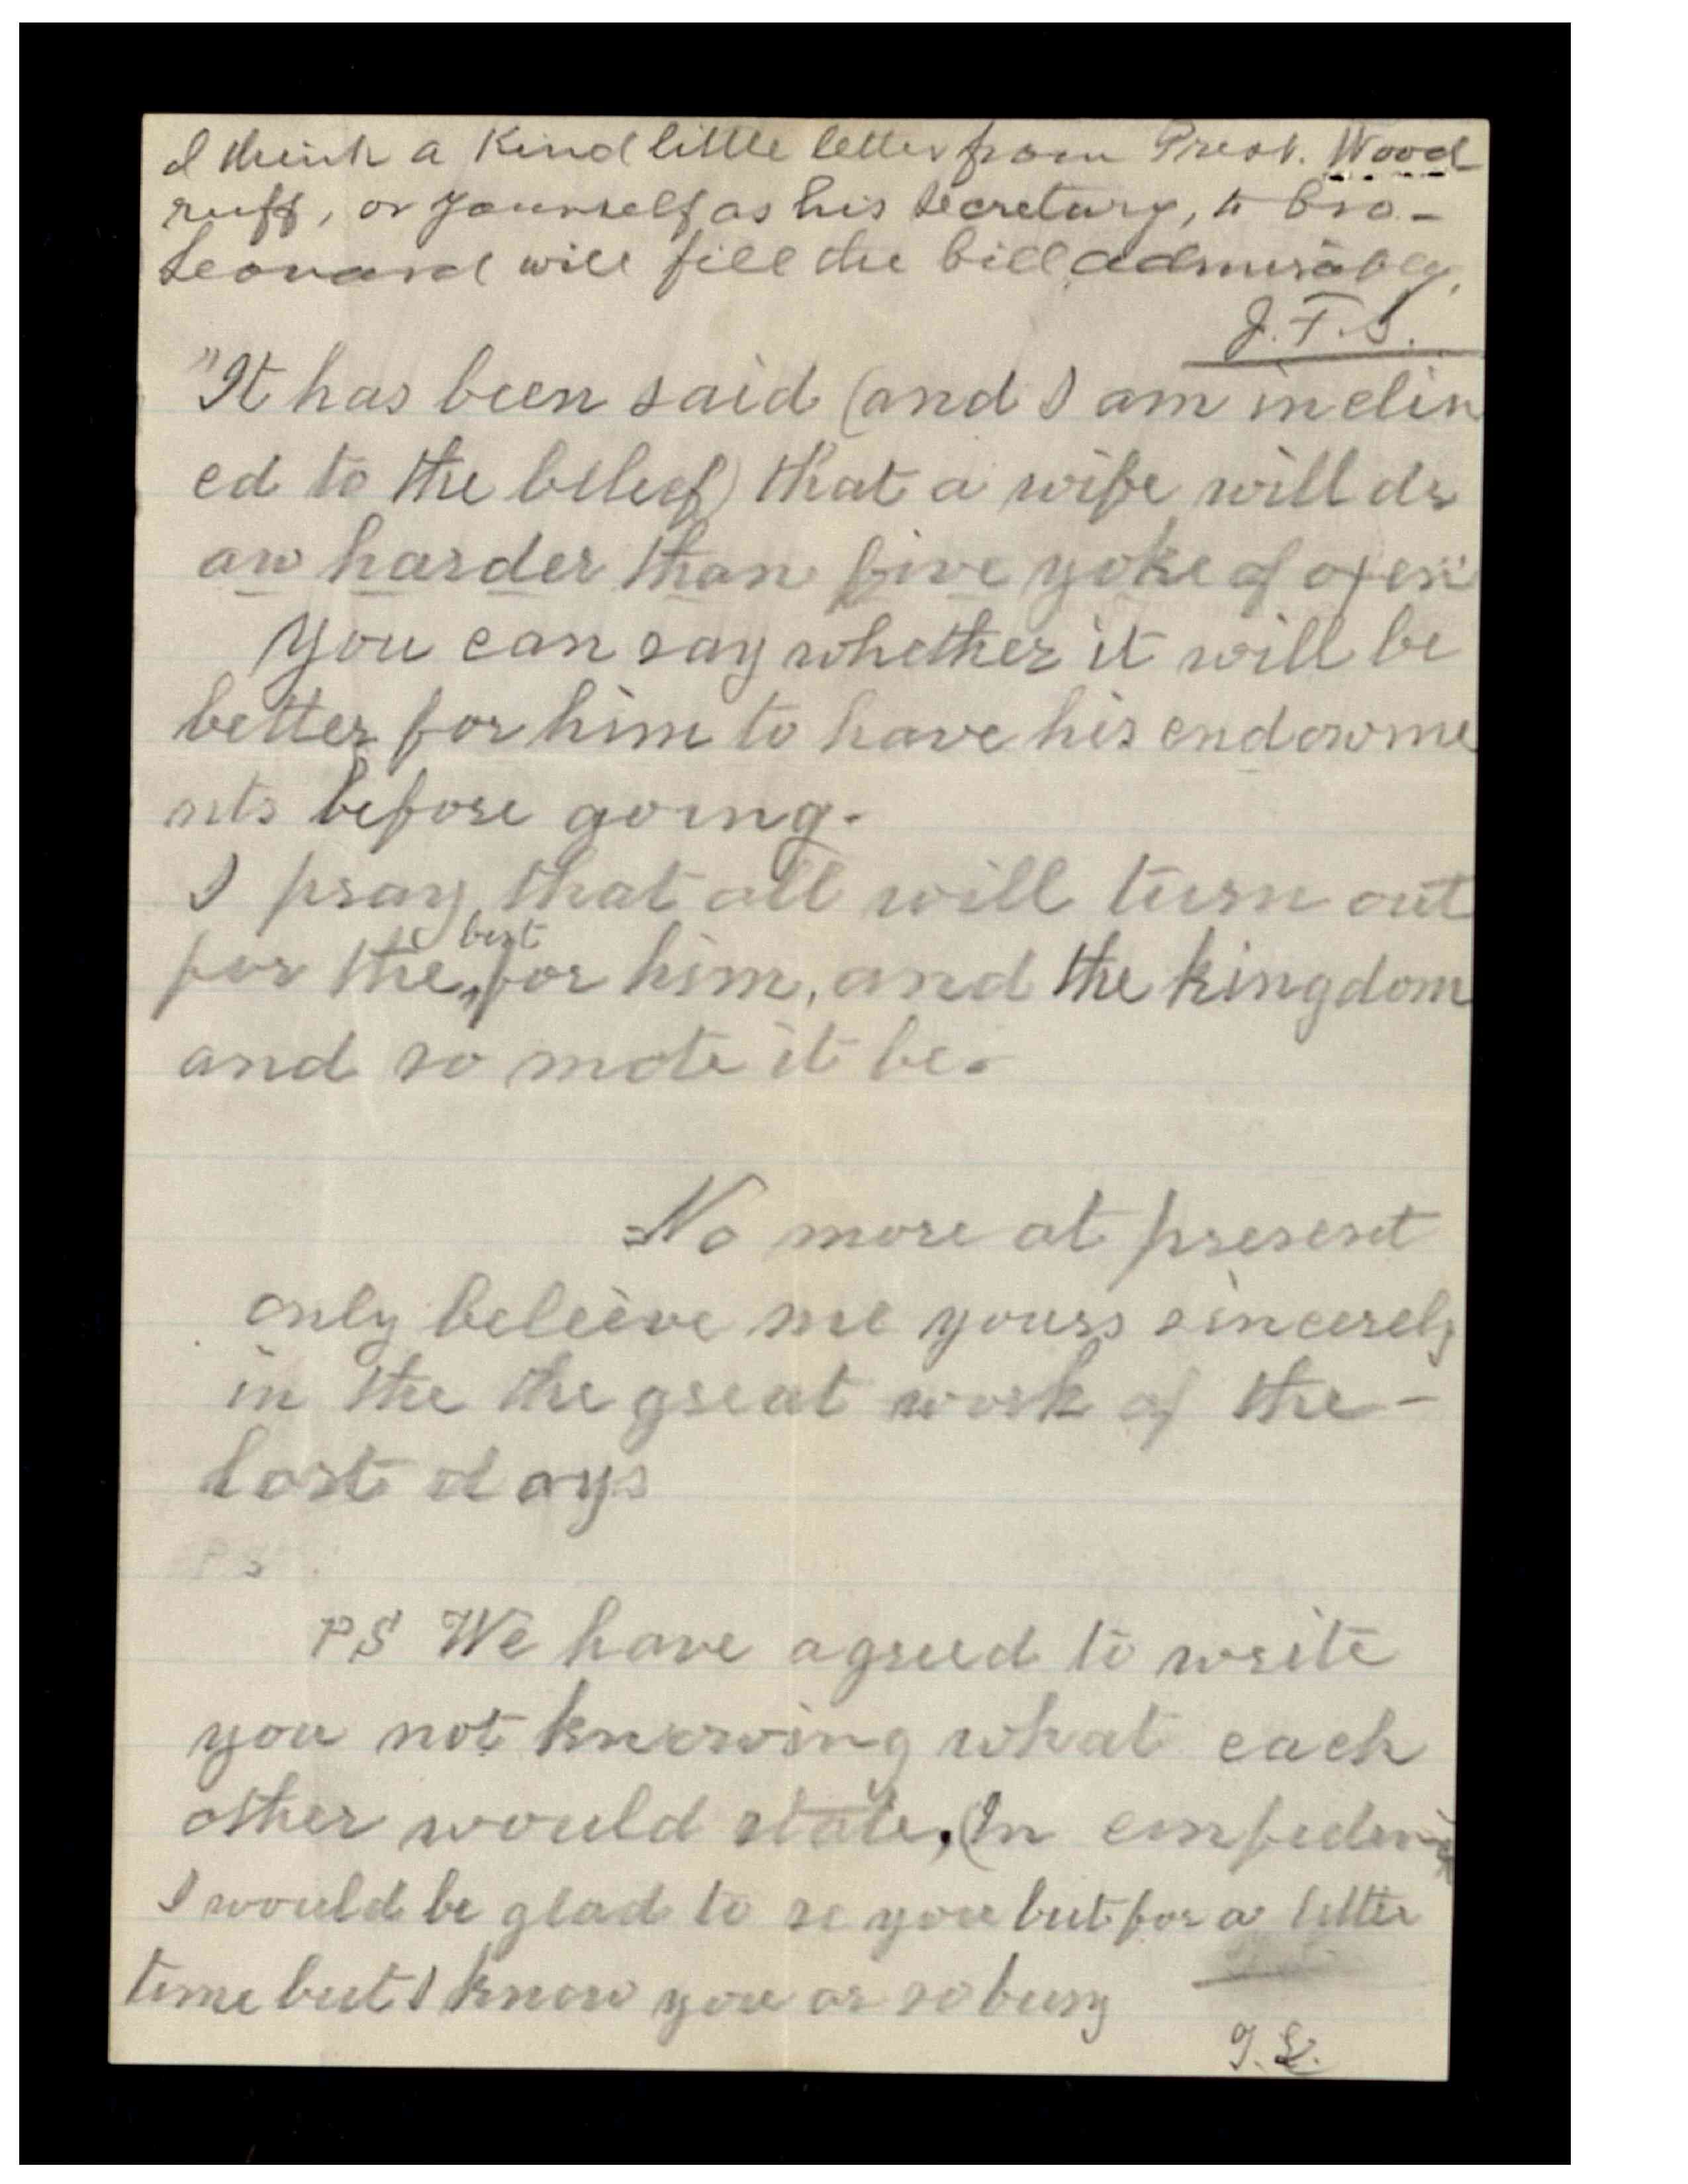 I think a Kind little letter from Prest. Wood
ruff, or yourself as his Secretary, to Bro-
Leonard will fill the bill admirably.
J.F.S.
"It has been said (and I am inclin
ed to the belief) that a wife will dr
aw harder than five yoke of oxen"
You can say whether it will be
better for him to have his endowme
nts before going.
I pray that all will turn out
best
for the ‸ for him, and the kingdom
and so mote it be.
No more at present
only beleive me yours sincerely
in the the great work of the-
last days
PS
PS We have agreed to write
you not knowing what each
other would state. (In
I would be glad to se you but for a little
time but I know you ar so busy
T.L.